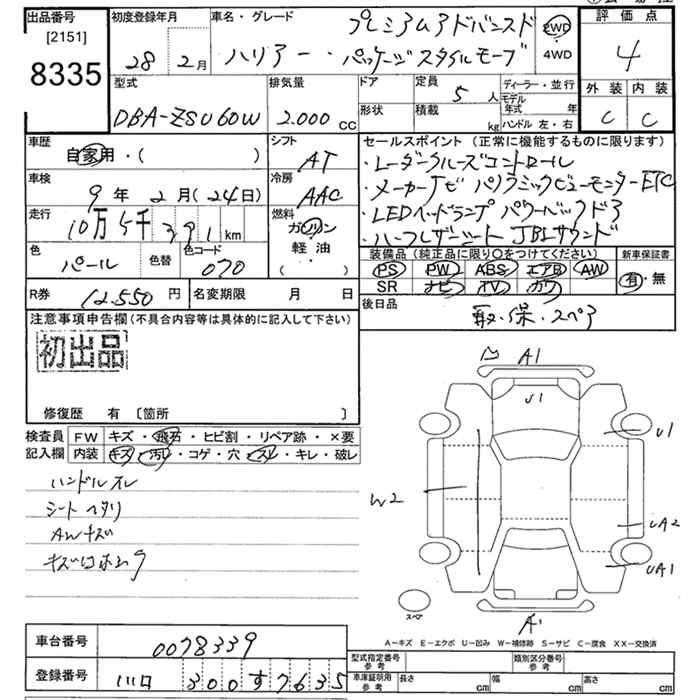 出品番号
[2151]
8335
初度登録年月
28 年 2 月
車名・グレード
プレミアムアドバンスド
ハリアー・パッケージスタイルモーブ
2WD
4WD
評価点
4
外装 内装
C C
型式
DBA-ZSU60W
排気量
2.000 CC
ドア
定員 5 人
形状
積載 kg
ディーラー・並行
モデル年式 年
ハンドル 左・右
車歴
自家用・( )
シフト
AT
車検
9 年 2 月 (24日)
冷房
AAC
走行
10万5千391 km
燃料
ガソリン
軽油
( )
色
パール
色替
色コード
070
セールスポイント (正常に機能するものに限ります)
・レーダークルーズコントロール
・メーカーナビ パノラミックビューモニターETC
・LEDヘッドランプ パワーバックドア
・ハーフレザーシート JBLサウンド
装備品 (純正品に限り○をつけてください)
PS PW ABS エアB AW
SR ナビ TV カワ
新車保証書
有・無
R券 12.550 円
名変期限 月 日
後日品
取・保・スペア
注意事項申告欄 (不具合内容等は具体的に記入して下さい)
初出品
修復歴 有 〔箇所 〕
検査員
記入欄
FW キズ・飛石・ヒビ割・リペア跡・×要
内装 キズ・汚レ・コゲ・穴・スレ・キレ・破レ
ハンドルスレ
シートヘタリ
AWキズ
A1
U1
U1
W2
UA2
UA1
スペア
A1
A-キズ E-エクボ U-凹み W-補修跡 S-サビ C-腐食 XX-交換済
車台番号
0078339
登録番号
川口 300す7635
型式指定番号
参考
類別区分番号
参考
車庫証明用
参考
長さ cm
幅 cm
高さ cm